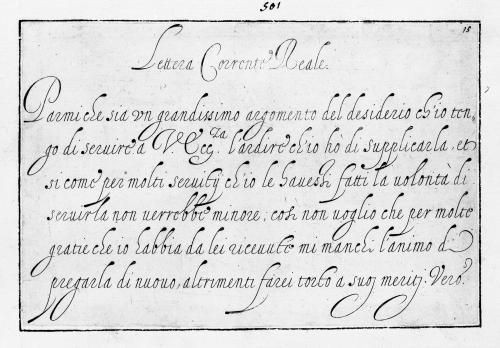 501
15
Lettera Corrente Reale.
Parmi che sia vn grandissimo argomento del desiderio ch'io ten,
go di seruire a V. Ecc.za l'ardire ch'io hò di supplicarla, et
si come per molti seruitij ch'io le hauessi fatti la volontà di
seruirla non verrebbe minore; così non uoglio che per molte
gratie che io habbia da lei riceuute mi manchi l'animo di
pregarla di nuouo, altrimenti farei torto a suoj meritj. Vero.